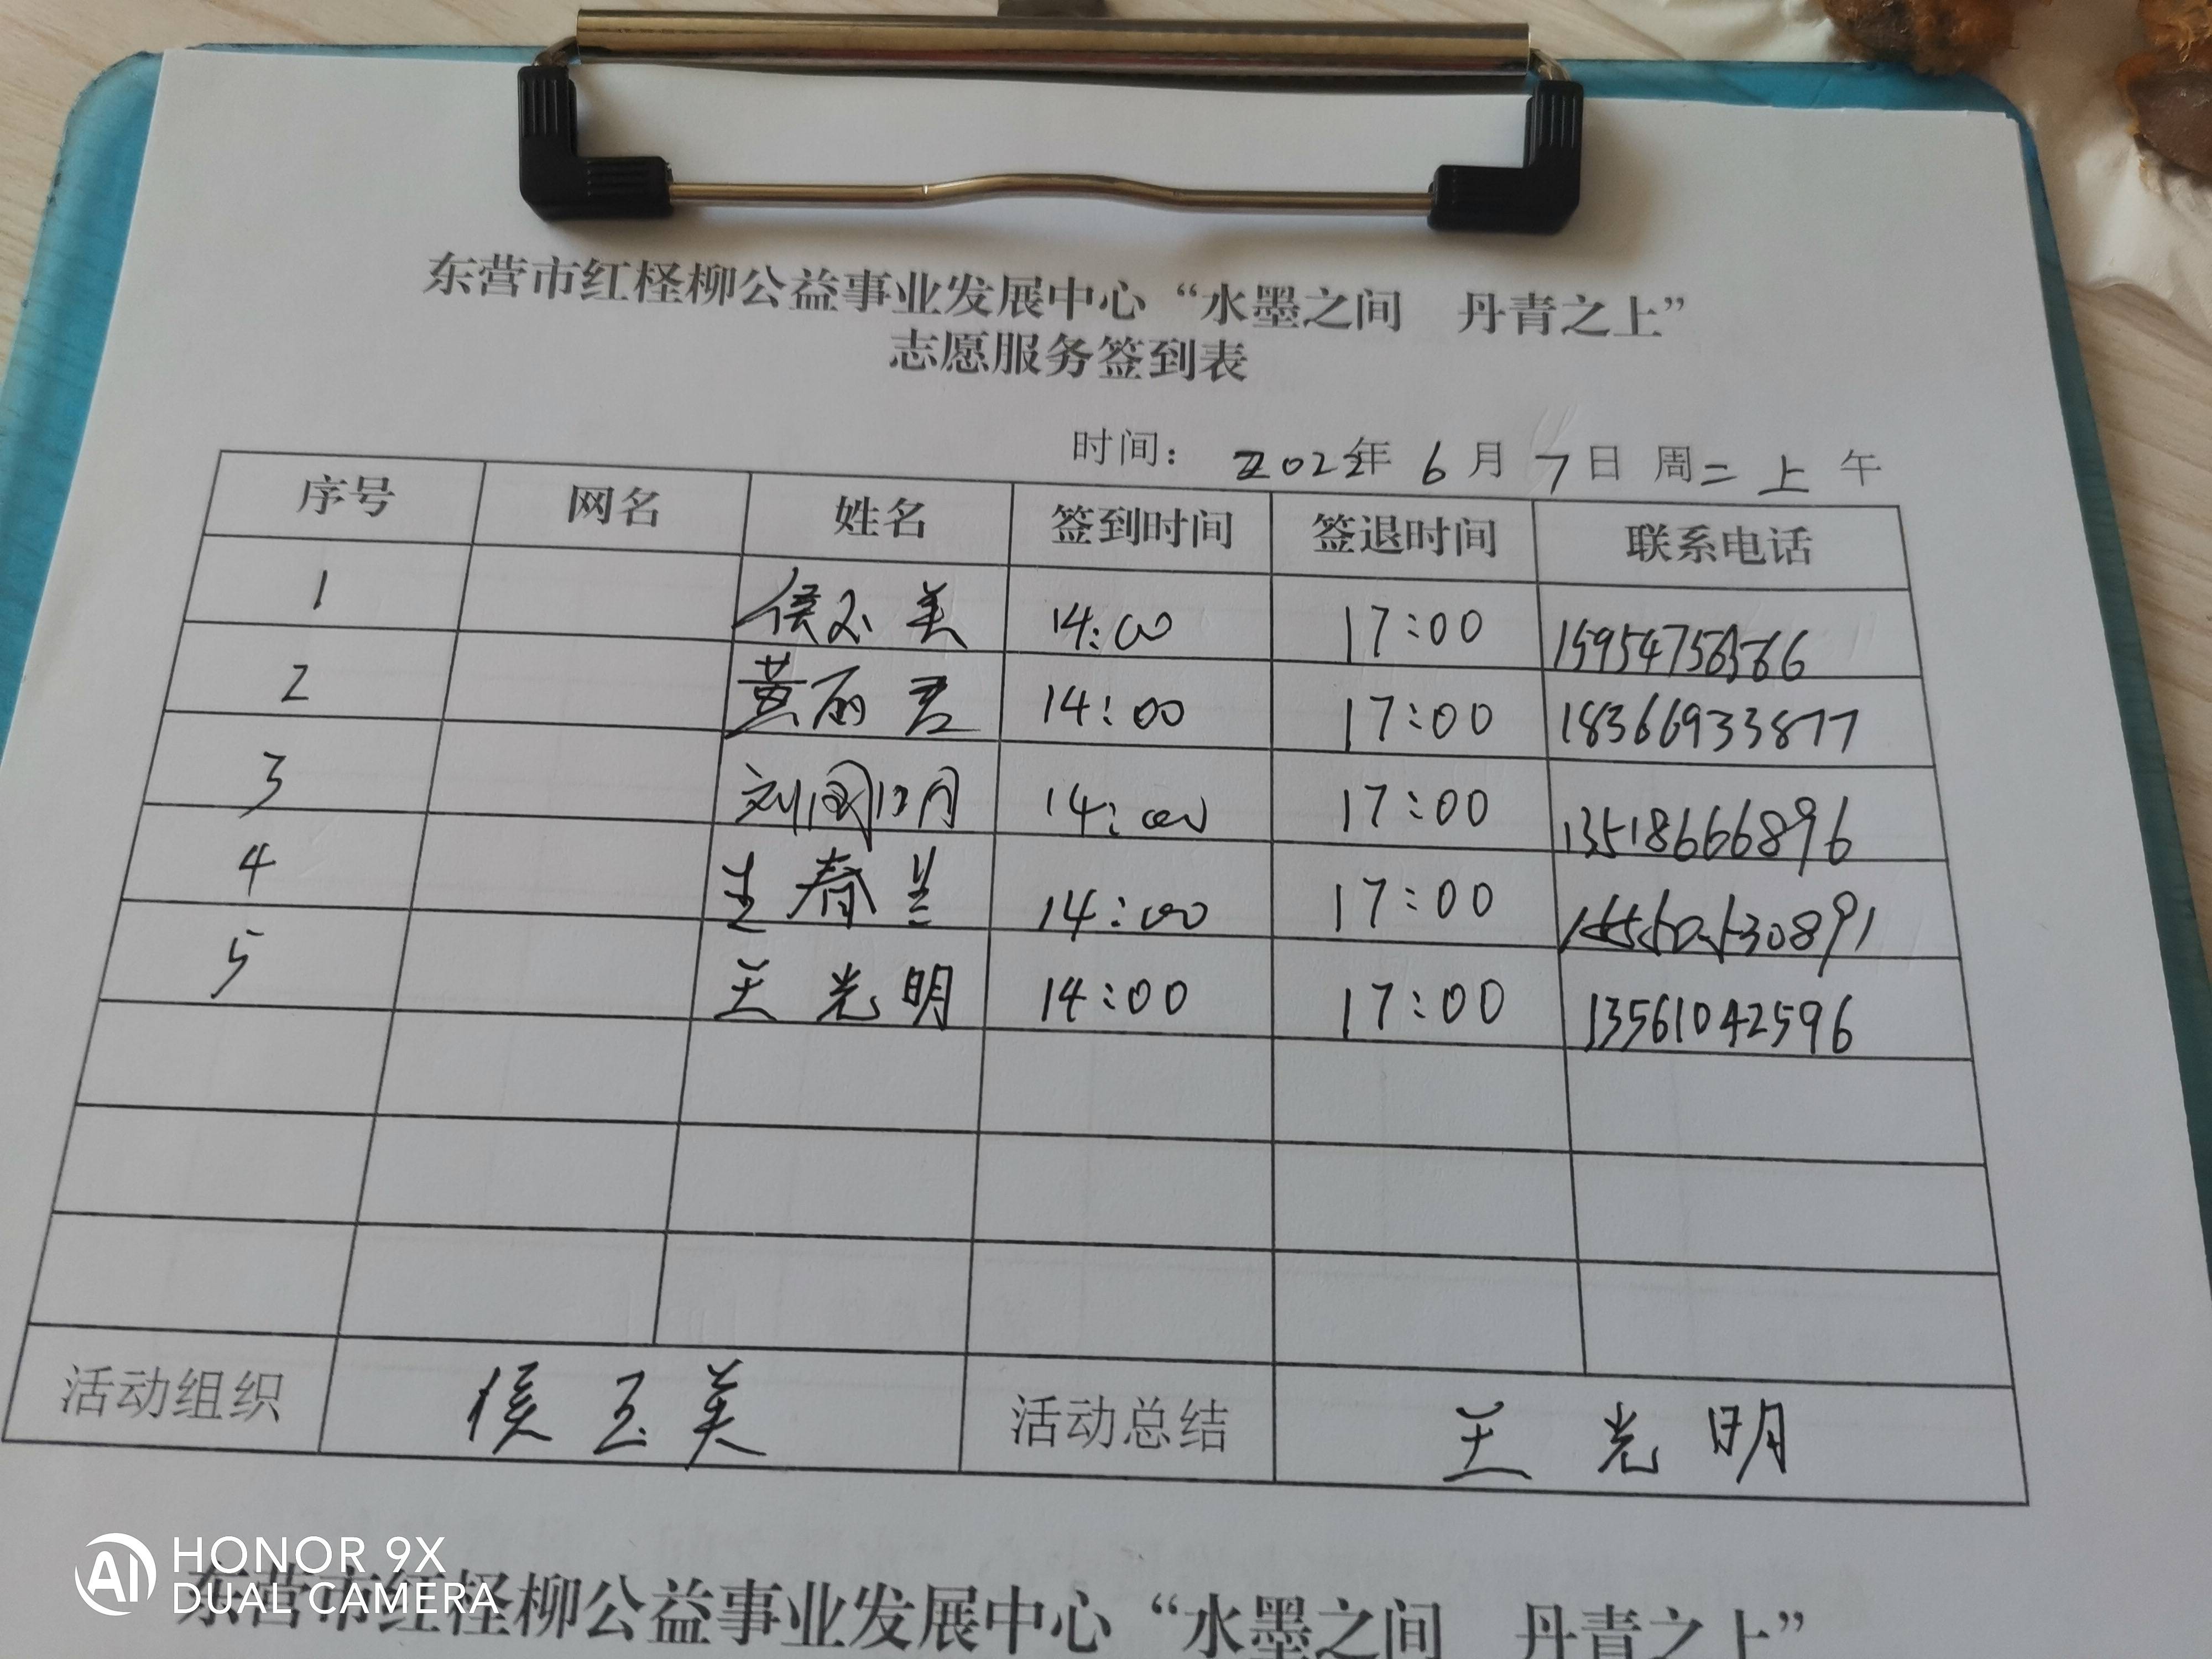 东营市红柽柳公益事业发展中心“水墨之间 丹青之上”
志愿服务签到表
时间： 2022年 6月 7日 周二 上 午
序号 网名 姓名 签到时间 签退时间 联系电话
1 侯玉美 14:00 17:00
2 黄丽君 14:00 17:00 18366933877
3 14:00 17:00 13518666896
4 王春兰 14:00 17:00
5 王光明 14:00 17:00 13561042596
活动组织 侯玉美 活动总结 王光明
AI HONOR 9X
DUAL CAMERA
东营市红柽柳公益事业发展中心“水墨之间 丹青之上”